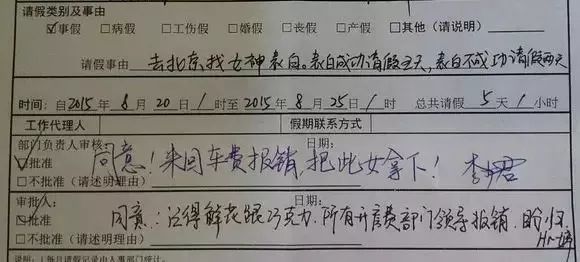 请假类别及事由
☑事假 □病假 □工伤假 □婚假 □丧假 □产假 □其他（请说明）
请假事由 去北京找女神表白。表白成功请假五天，表白不成功请假两天
时间：自2015年8月20日1时至2015年8月25日1时 总共请假5天1小时
工作代理人 假期联系方式
部门负责人审核： 日期：
☑批准 同意！来回车费报销，把此女拿下！
□不批准（请述明理由）
审批人： 日期：
☑批准 同意：记得鲜花跟巧克力，所有开房费部门领导报销，盼归
□不批准（请述明理由）